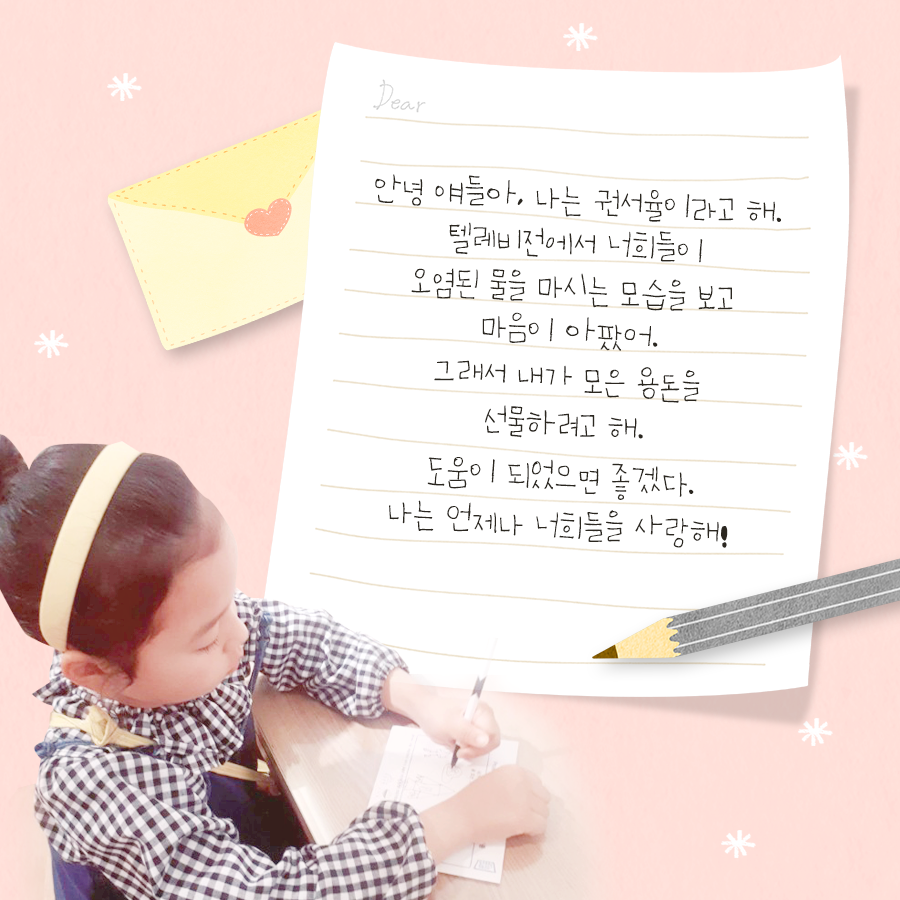 Dear
안녕 얘들아, 나는 권서율이라고 해.
텔레비전에서 너희들이
오염된 물을 마시는 모습을 보고
마음이 아팠어.
그래서 내가 모은 용돈을
선물하려고 해.
도움이 되었으면 좋겠다.
나는 언제나 너희들을 사랑해!